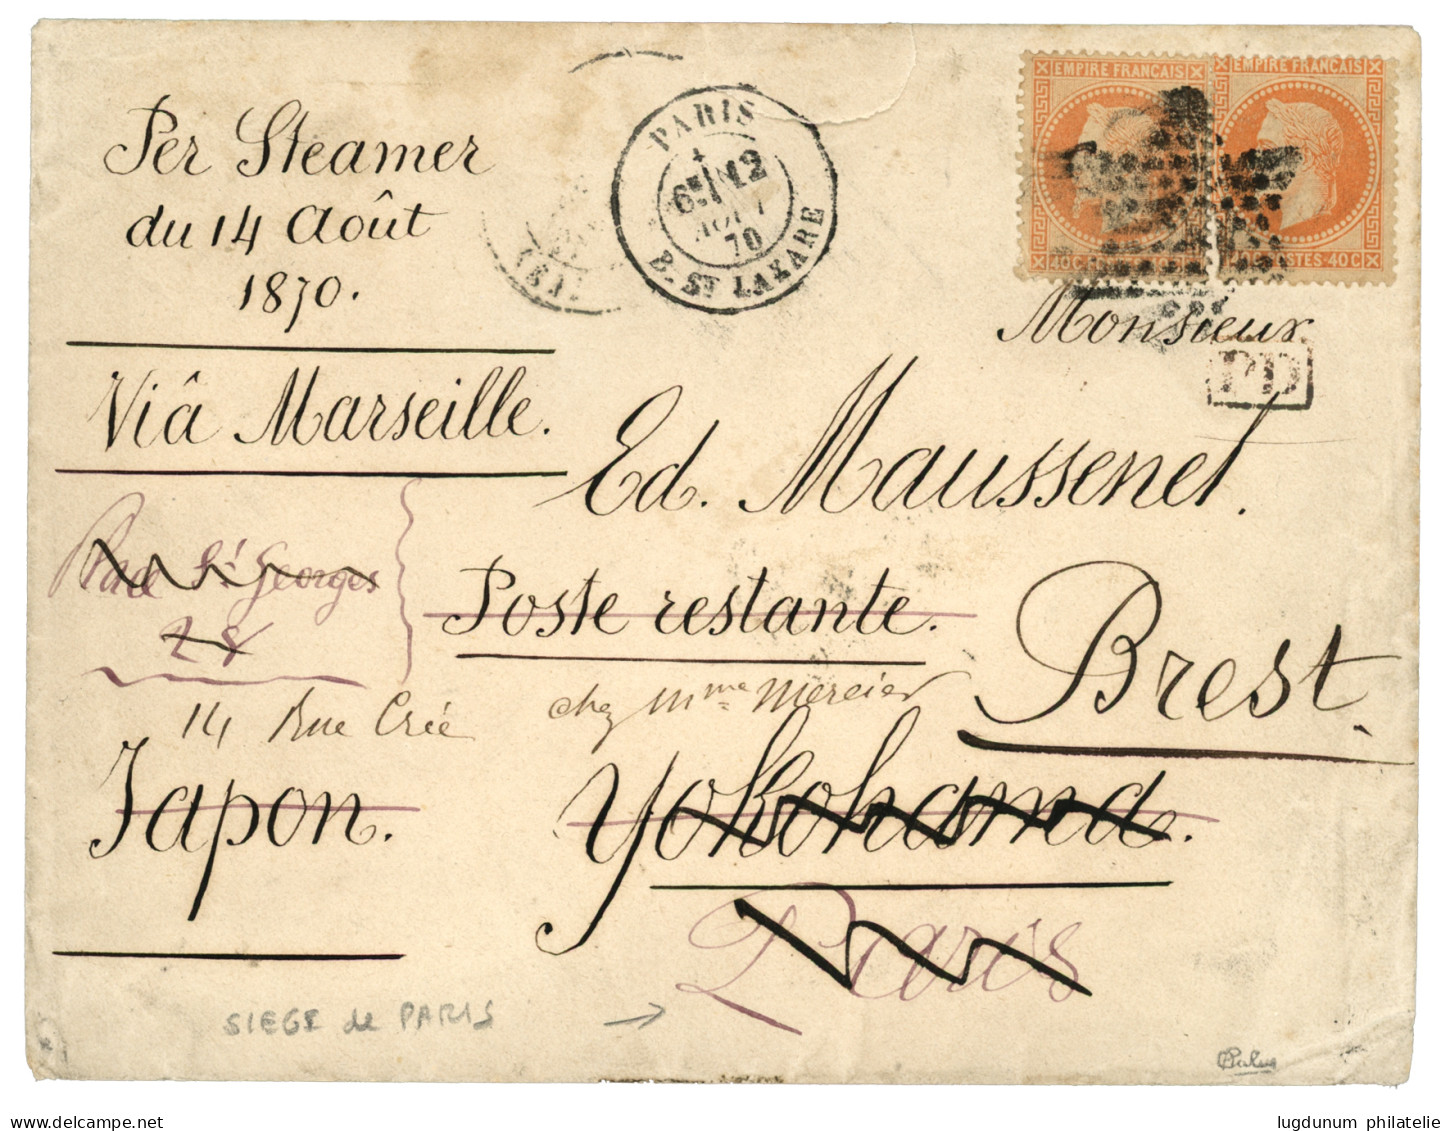 Per Steamer
du 14 Août
1870.
Viâ Marseille.
PARIS
6E/12
AOUT
70
B. ST LAZARE
EMPIRE FRANÇAIS
EMPIRE FRANÇAIS
40 C
POSTES 40 C
Monsieur
PD
Ed. Maussenet.
Place St Georges
28
Poste restante.
Brest.
14 Rue Crée
chez Mme Mercier
Japon.
Yokohama.
Paris
SIEGE de PARIS →
delcampe.net
lugdunum philatelie